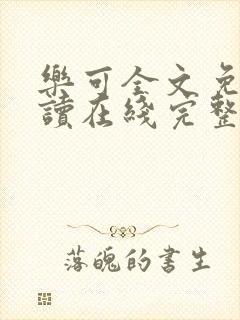 樂可全文免
讀在綫完整
落魄的書生